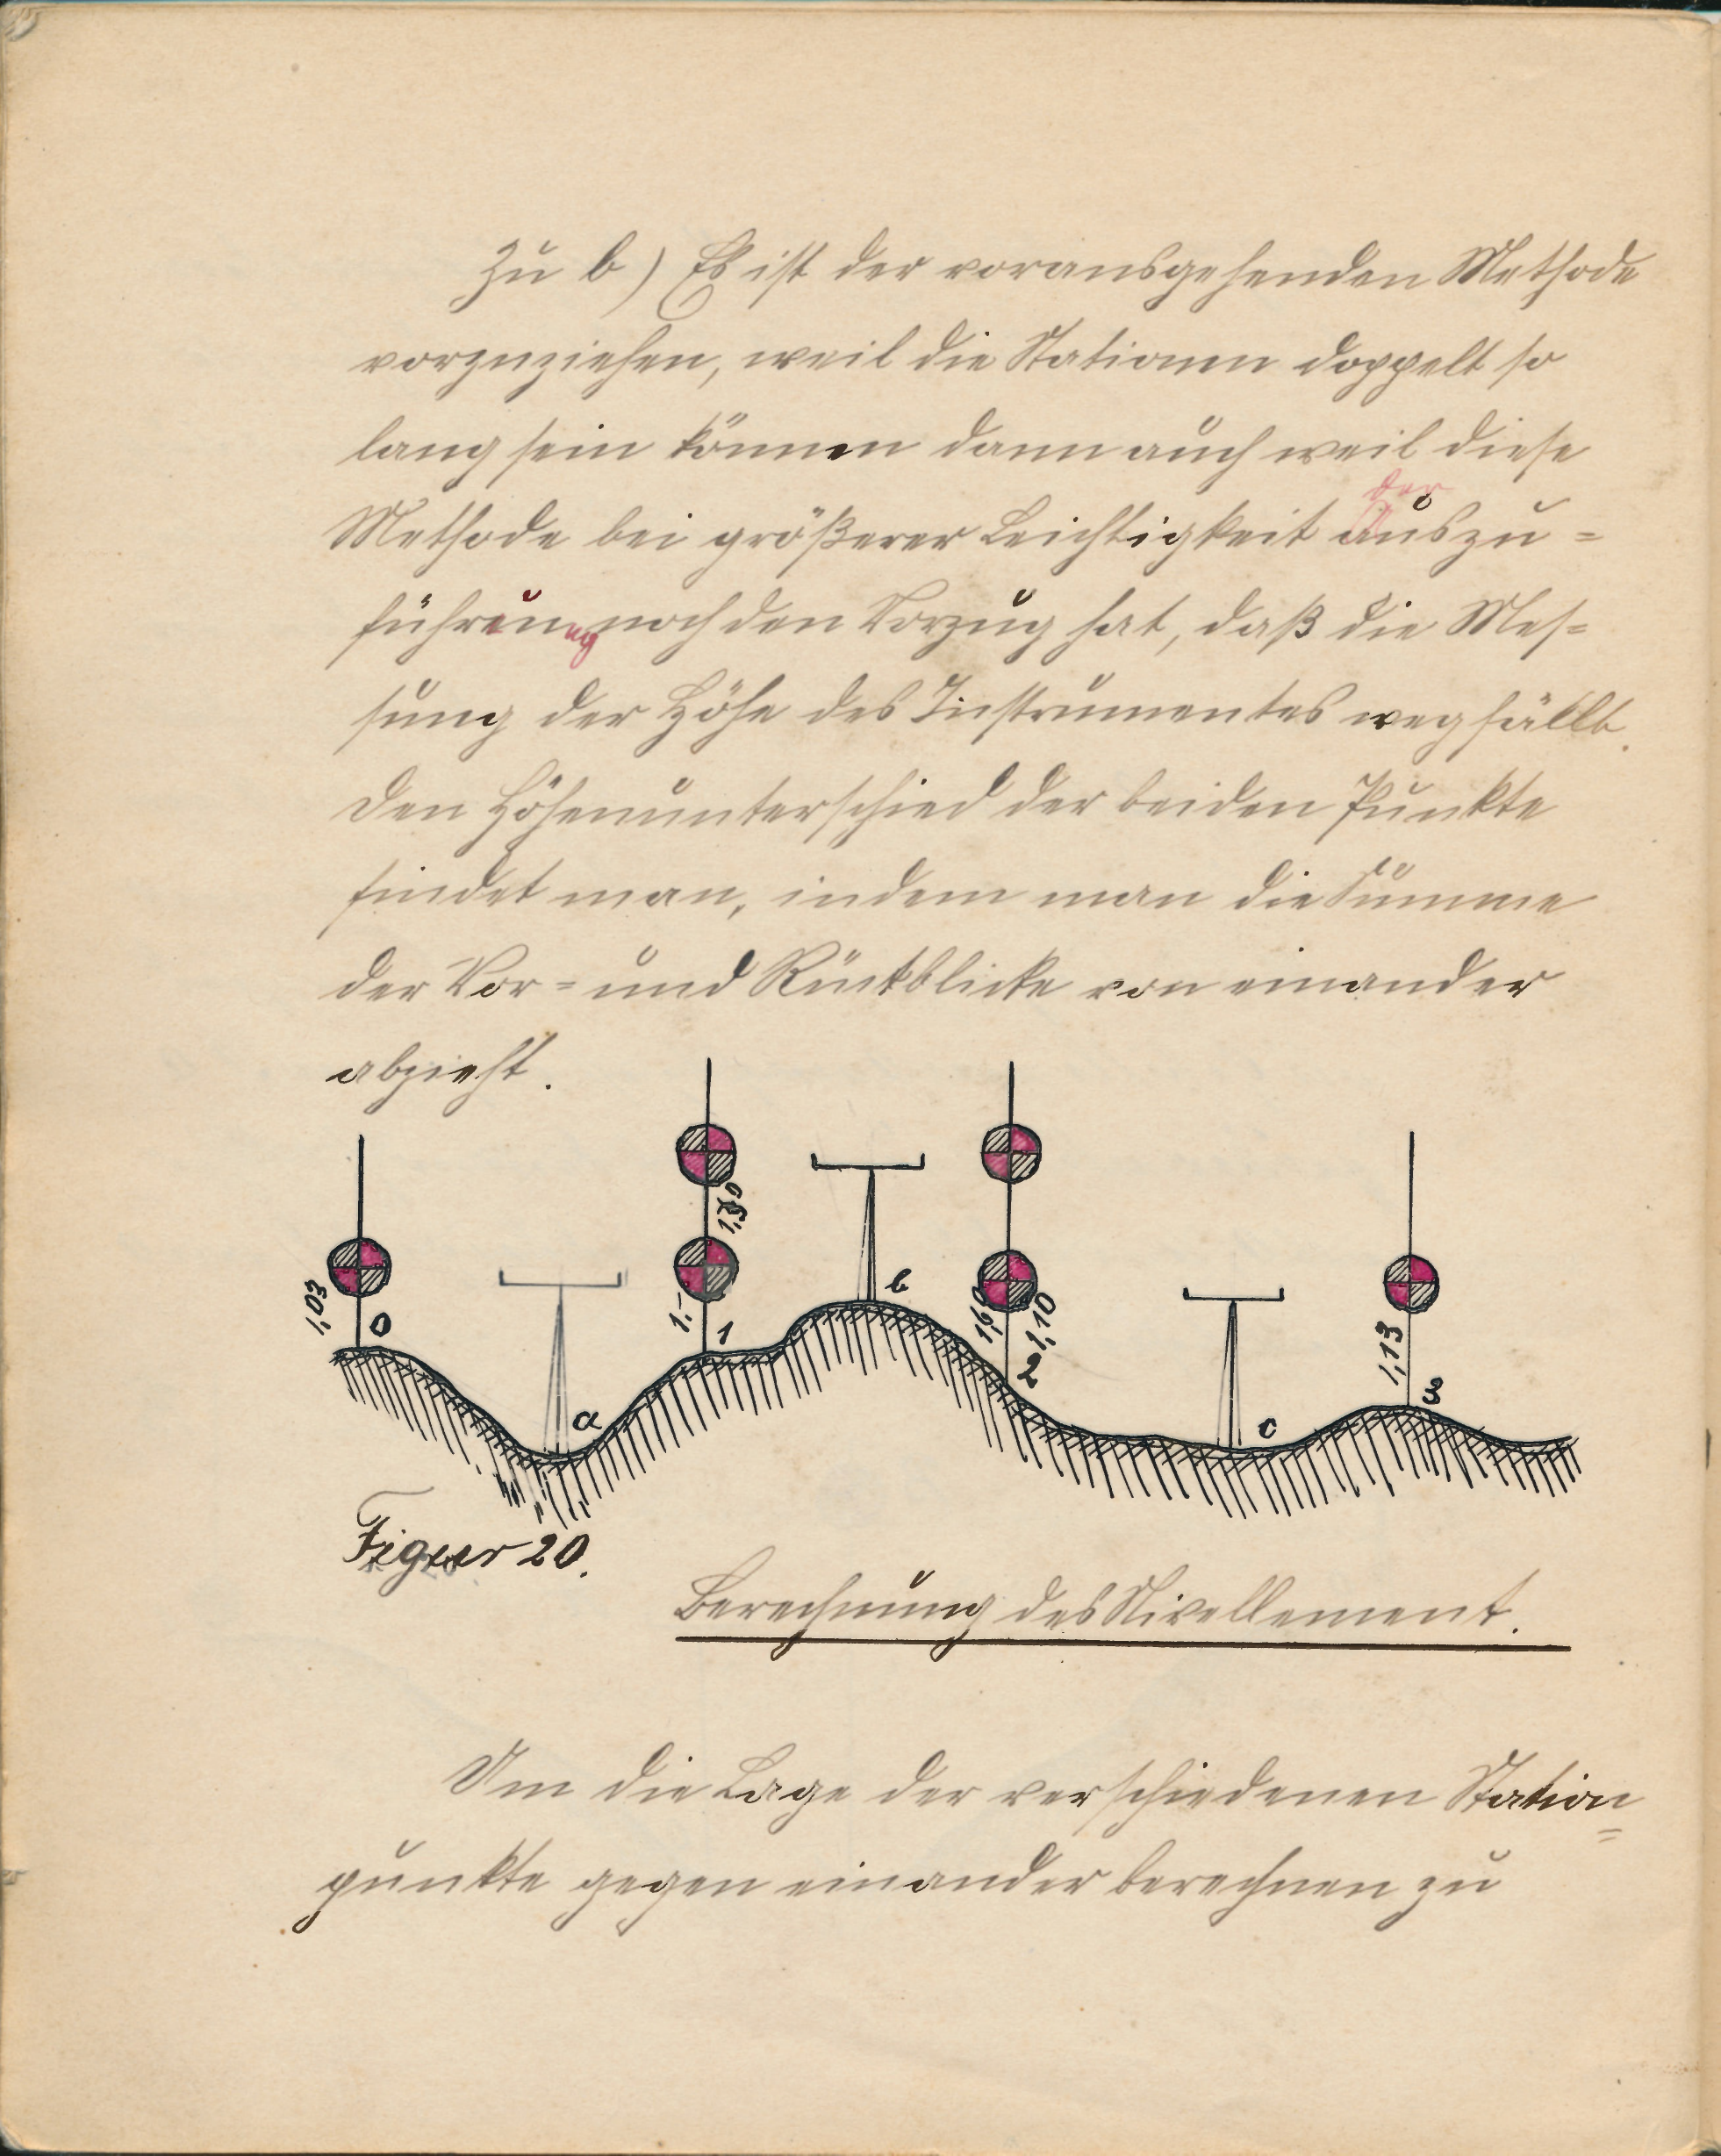 Zu b) Es ist der voransgehenden Methode
vorzuziehen, weil die Stationen doppelt so
lang sein können dann auch weil diese
der
Methode bei größerer Leichtigkeit Auszu=
führung noch den Vorzug hat, daß die Mes=
sung der Höhe des Instrumentes wegfällt.
Den Höhenunterschied der beiden Punkte
findet man, indem man die Summe
der Vor= und Rückblicke von einander
abzieht.
1,03 0 a 1.- 1 b 1,60 1,10 2 c 1,13 3
Figur 20.
Berechnung des Nivellement.
Um die Lage der verschiedenen Station=
punkte gegen einander berechnen zu